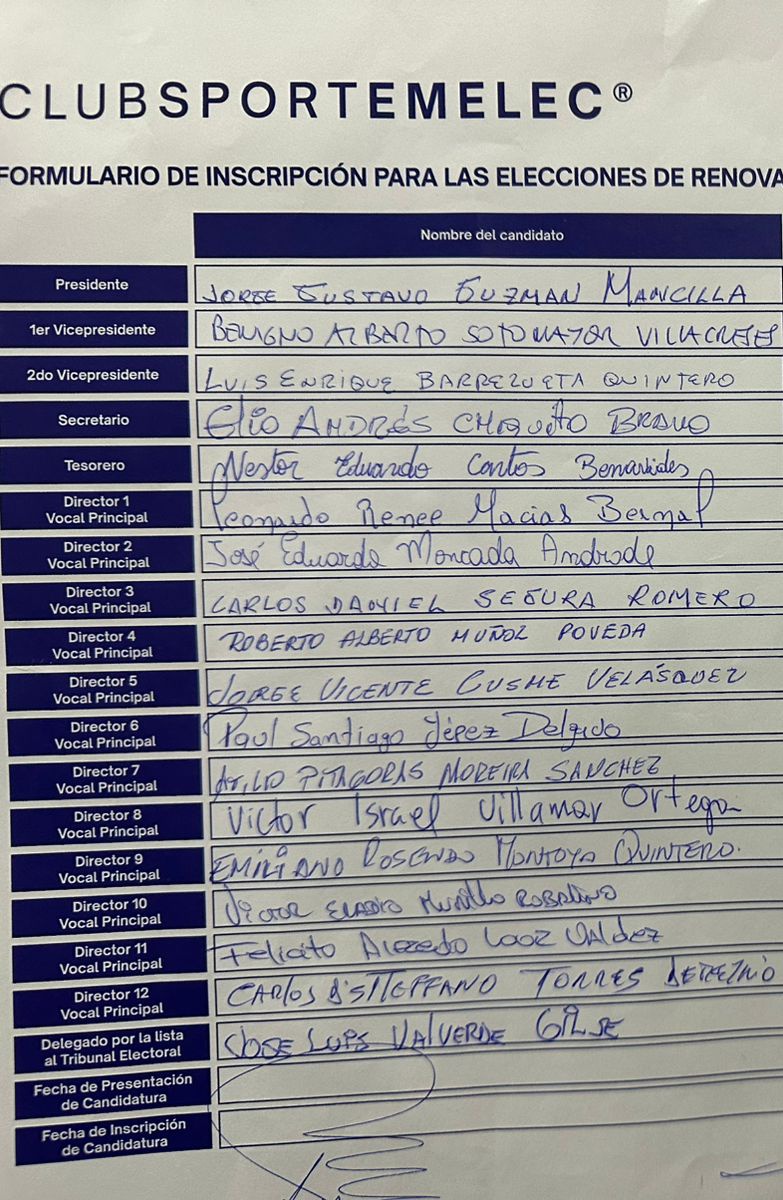 CLUBSPORTEMELEC®
FORMULARIO DE INSCRIPCIÓN PARA LAS ELECCIONES DE RENOVA
Nombre del candidato
Presidente JORGE GUSTAVO GUZMAN MANCILLA
1er Vicepresidente BENIGNO ALBERTO SOTOMAYOR VILLACRESES
2do Vicepresidente LUIS ENRIQUE BARREZUETA QUINTERO
Secretario Elio ANDRÉS CHIQUITO BRAVO
Tesorero Nestor Eduardo Contos Benavides
Director 1
Vocal Principal Leonardo Renee Macias Bernal
Director 2
Vocal Principal José Eduardo Moncada Andrade
Director 3
Vocal Principal CARLOS DANIEL SEGURA ROMERO
Director 4
Vocal Principal ROBERTO ALBERTO MUÑOZ POVEDA
Director 5
Vocal Principal JORGE VICENTE CUSME VELÁSQUEZ
Director 6
Vocal Principal Paul Santiago Yépez Delgado
Director 7
Vocal Principal PITAGORAS MOREIRA SANCHEZ
Director 8
Vocal Principal Victor Israel Villamar Ortega
Director 9
Vocal Principal EMILIANO ROSENDO MONTOYA QUINTERO.
Director 10
Vocal Principal Victor ELADIO Murillo ROBALINO
Director 11
Vocal Principal Felicito Valdez
Director 12
Vocal Principal CARLOS TORRES
Delegado por la lista
al Tribunal Electoral JOSE LUIS VALVERDE
Fecha de Presentación
de Candidatura
Fecha de Inscripción
de Candidatura